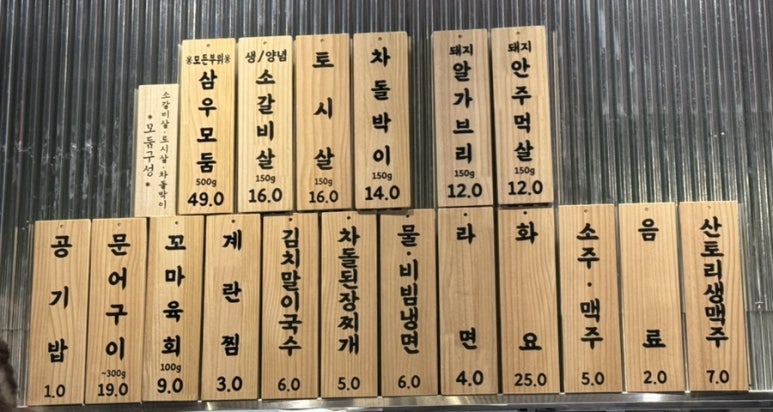 *소갈비살·토시살·차돌박이
*모듬구성*
※모든부위※
삼우모둠
500g
49.0
생/양념
소갈비살
150g
16.0
토시살
150g
16.0
차돌박이
150g
14.0
돼지
알가브리
150g
12.0
돼지
안주먹살
150g
12.0
공기밥
1.0
문어구이
~300g
19.0
꼬마육회
100g
9.0
계란찜
3.0
김치말이국수
6.0
차돌된장찌개
5.0
물·비빔냉면
6.0
라면
4.0
화요
25.0
소주·맥주
5.0
음료
2.0
산토리생맥주
7.0